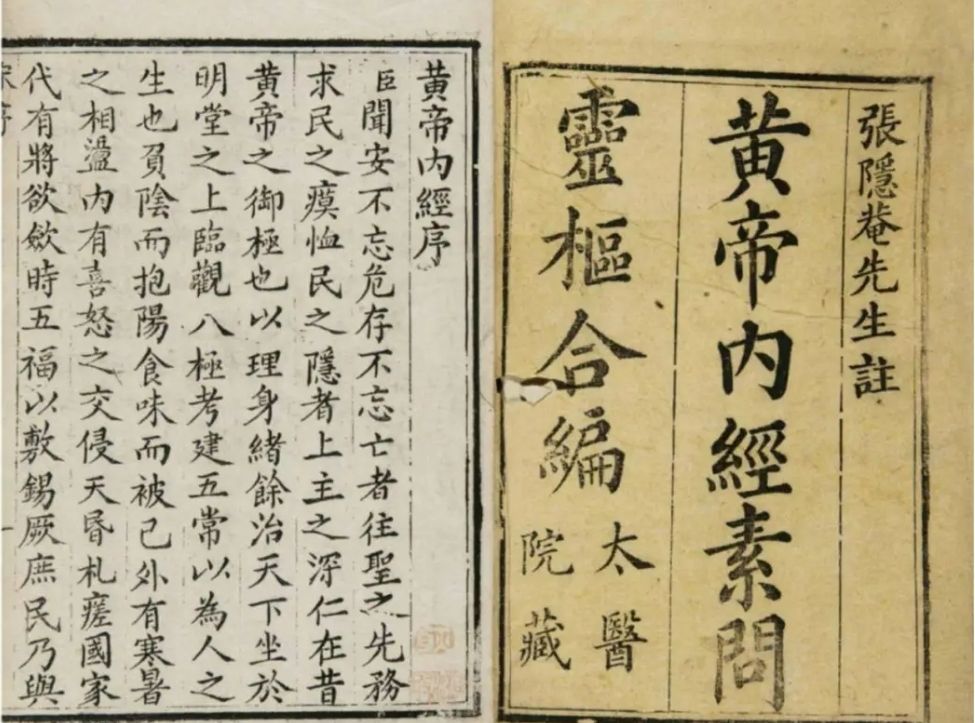 張隱菴先生註
黃帝內經素問
靈樞合編
太醫
院藏
黃帝內經序
臣聞安不忘危存不忘亡者往聖之先務
求民之瘼恤民之隱者上主之深仁在昔
黃帝之御極也以理身緒餘治天下坐於
明堂之上臨觀八極考建五常以為人之
生也負陰而抱陽食味而被色外有寒暑
之相盪內有喜怒之交侵天昏札瘥國家
代有將欲斂時五福以敷錫厥庶民乃與